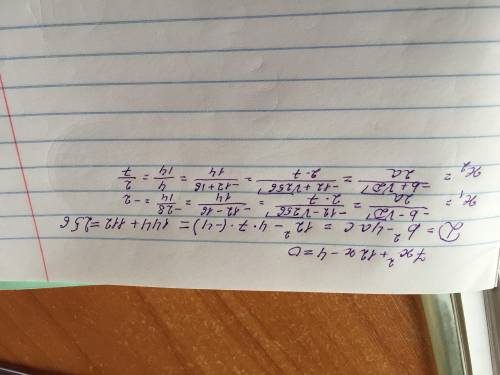 7x² + 12x - 4 = 0
D = b² - 4ac = 12² - 4·7·(-4) = 144 + 112 = 256
x₁ = (-b - √D)/2a = (-12 - √256)/2·7 = (-12 - 16)/14 = -28/14 = -2
x₂ = (-b + √D)/2a = (-12 + √256)/2·7 = (-12 + 16)/14 = 4/14 = 2/7